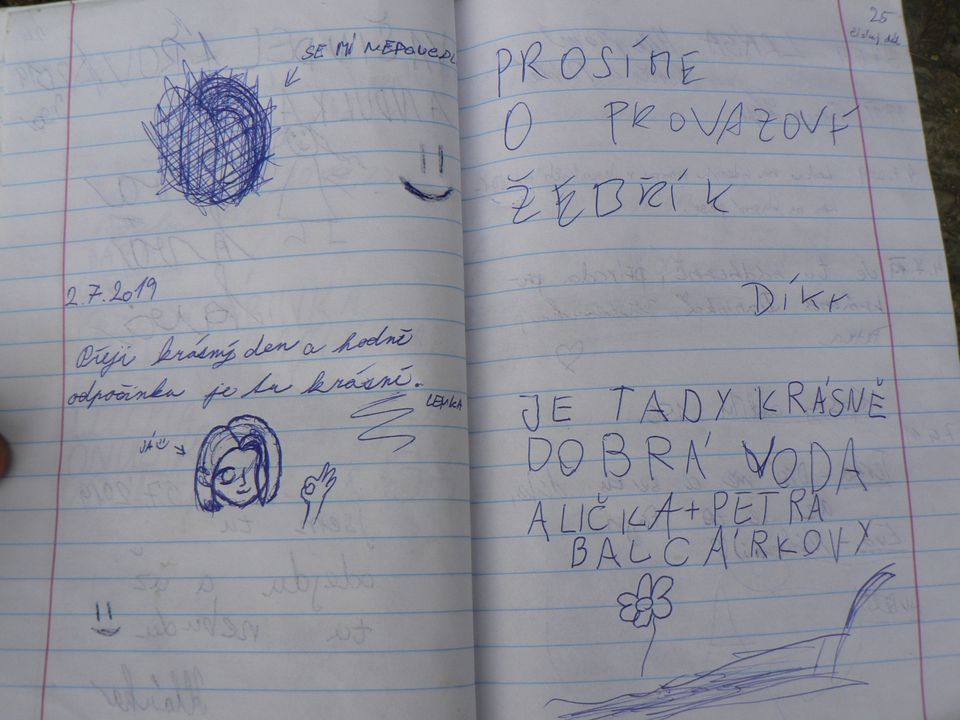 SE MÍ NEPOVEDL
2.7.2019
Přeji krásný den a hodně
odpočinku je tu krásně.
LENKA
JÁ
25
PROSÍME
O PROVAZOVÝ
ŽEBŘÍK
DÍKY
JE TADY KRÁSNĚ
DOBRÁ VODA
ALIČKA+PETRA
BALCÁŘKOVY